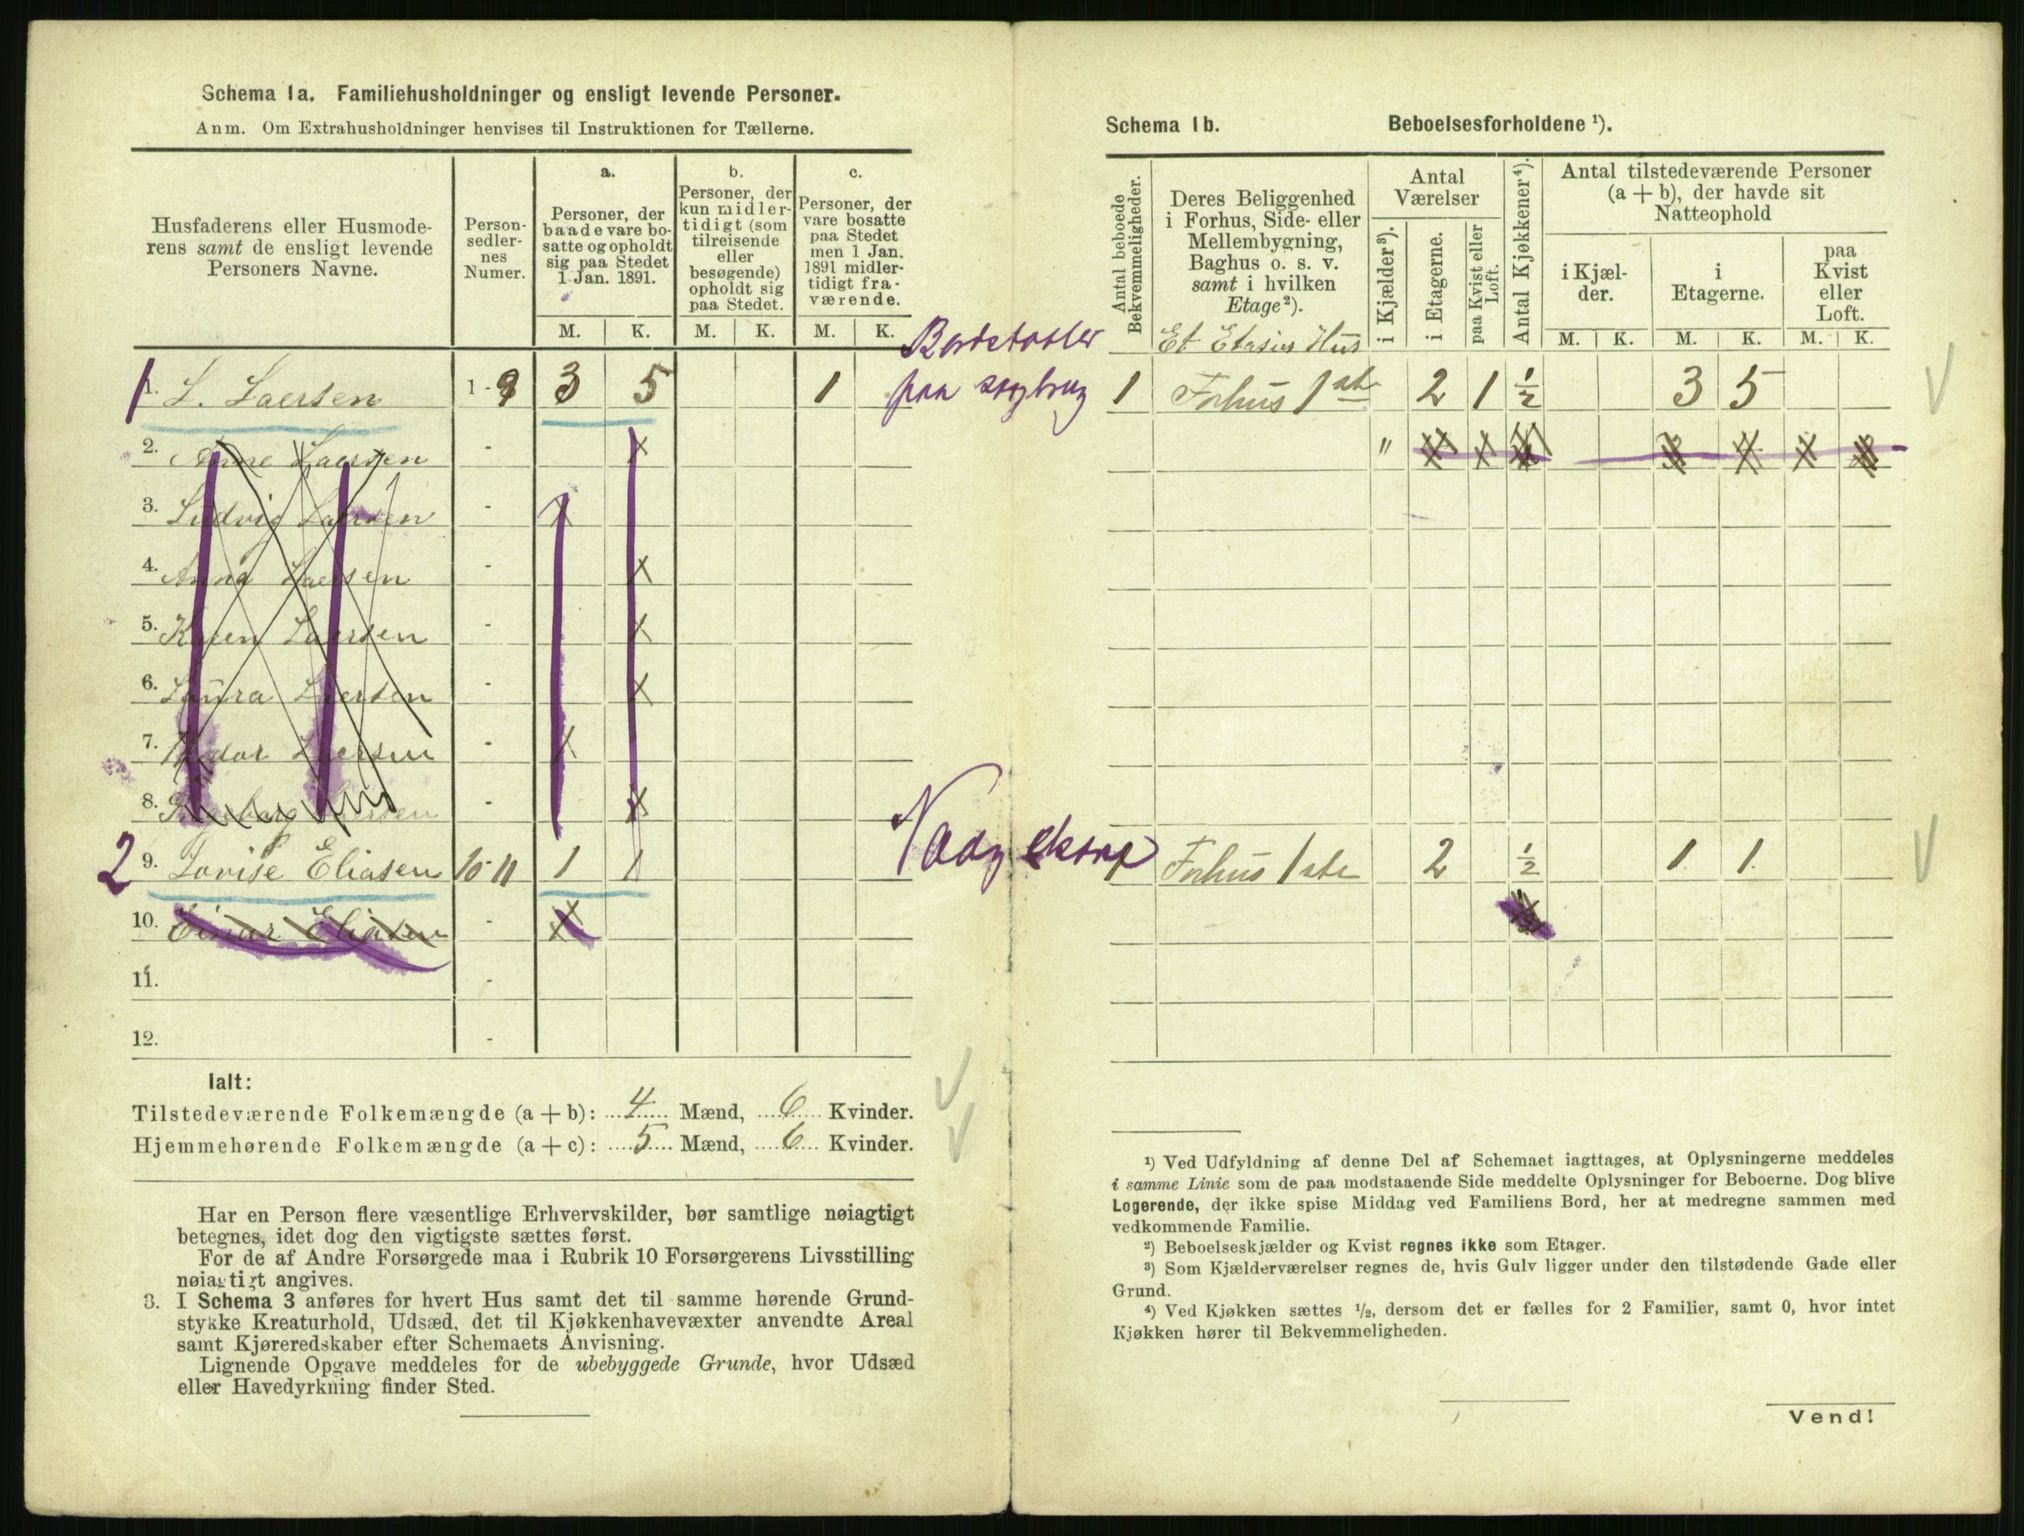 Schema 1a. Familiehusholdninger og ensligt levende Personer.
Anm. Om Extrahusholdninger henvises til Instruktionen for Tællerne.
Husfaderens eller Husmoderens samt de ensligt levende Personers Navne.
Personsedlernes Numer.
a.
Personer, der baade vare bosatte og opholdt sig paa Stedet 1 Jan. 1891.
b.
Personer, der kun midlertidigt (som tilreisende eller besøgende) opholdt sig paa Stedet.
c.
Personer, der vare bosatte paa Stedet men 1 Jan. 1891 midlertidigt fraværende.
M. K. M. K. M. K.
1 1. L. Laersen 1 - 9 3 5 1
2. Anne Laersen - x
3. Ludvig Laersen - x
4. Anna Laersen - x
5. Karen Laersen - x
6. Laura Laersen - x
7. Laersen - x
8. Laersen - x
2 9. Lovise Eliasen 10-11 1 1
10. Einar Eliasen - x
11. -
12. -
Ialt:
Tilstedeværende Folkemængde (a + b): 4 Mænd, 6 Kvinder.
Hjemmehørende Folkemængde (a + c): 5 Mænd, 6 Kvinder.
Har en Person flere væsentlige Erhvervskilder, bør samtlige nøiagtigt
betegnes, idet dog den vigtigste sættes først.
For de af Andre Forsørgede maa i Rubrik 10 Forsørgerens Livsstilling
nøiagtigt angives.
3. I Schema 3 anføres for hvert Hus samt det til samme hørende Grund-
stykke Kreaturhold, Udsæd, det til Kjøkkenhavevæxter anvendte Areal
samt Kjøreredskaber efter Schemaets Anvisning.
Lignende Opgave meddeles for de ubebyggede Grunde, hvor Udsæd
eller Havedyrkning finder Sted.
Schema 1b. Beboelsesforholdene ¹).
Antal beboede Bekvemmeligheder.
Deres Beliggenhed i Forhus, Side- eller Mellembygning, Baghus o. s. v. samt i hvilken Etage²).
Antal Værelser
i Kjælder³).
i Etagerne.
paa Kvist eller Loft.
Antal Kjøkkener⁴).
Antal tilstedeværende Personer (a + b), der havde sit Natteophold
i Kjælder.
i Etagerne.
paa Kvist eller Loft.
M. K. M. K. M. K.
Et Etasies Hus
paa
1 Forhus 1ste 2 1 ½ 3 5
"
Forhus 1ste 2 ½ 1 1
¹) Ved Udfyldning af denne Del af Schemaet iagttages, at Oplysningerne meddeles
i samme Linie som de paa modstaaende Side meddelte Oplysninger for Beboerne. Dog blive
Logerende, der ikke spise Middag ved Familiens Bord, her at medregne sammen med
vedkommende Familie.
²) Beboelseskjælder og Kvist regnes ikke som Etager.
³) Som Kjælderværelser regnes de, hvis Gulv ligger under den tilstødende Gade eller
Grund.
⁴) Ved Kjøkken sættes ½, dersom det er fælles for 2 Familier, samt 0, hvor intet
Kjøkken hører til Bekvemmeligheden.
Vend!